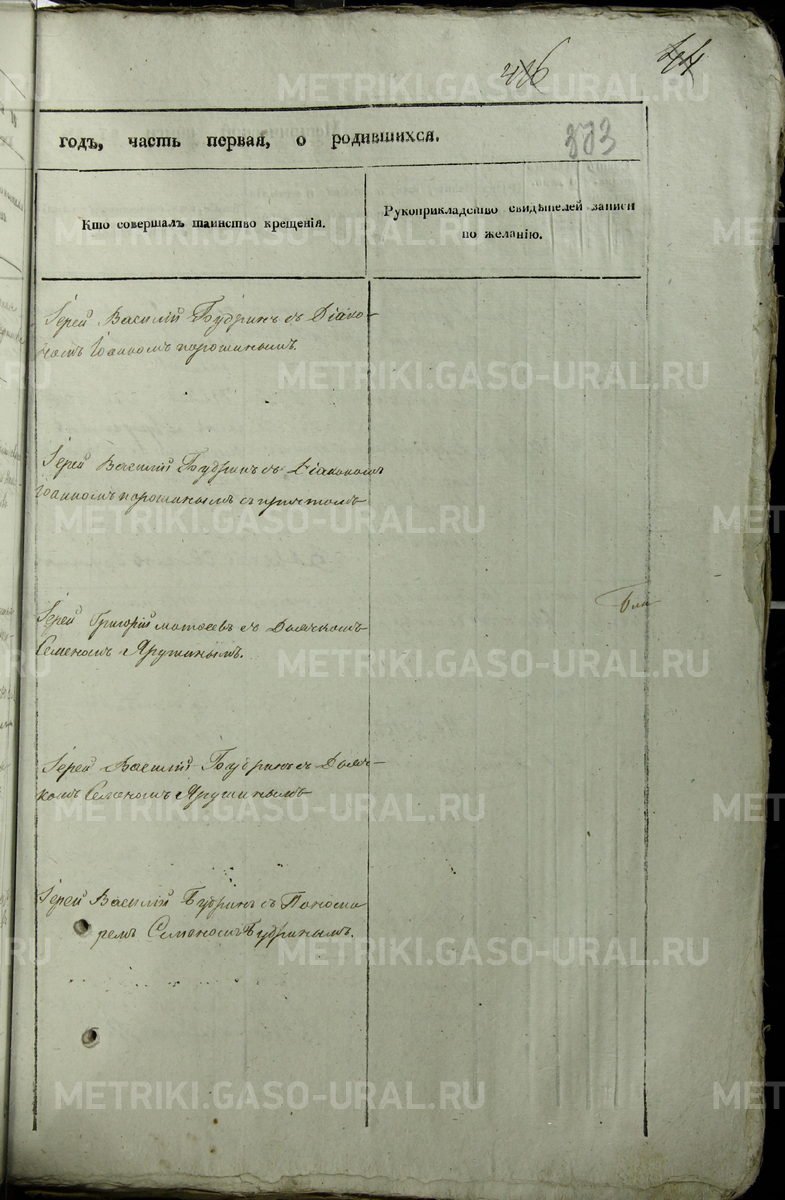 416
44
годъ, часть первая, о родившихся.
303
Кто совершалъ таинство крещенія.
Рукоприкладство свидѣтелей записи
по желанію.
Іерей Василій Будринъ съ Діако-
номъ Іоанномъ порошинымъ.
Іерей Василій Будринъ съ Діакономъ
Іоанномъ порошинымъ съ причтомъ
Іерей Григорій матѳеевъ съ Дьячкомъ
Семеномъ Ярушинымъ.
Іерей Василій Будринъ съ Дьяч-
комъ Семеномъ Ярушинымъ
Іерей Василій Будринъ съ Поnoма
ремъ Семеномъ Будринымъ.
METRIKI.GASO-URAL.RU